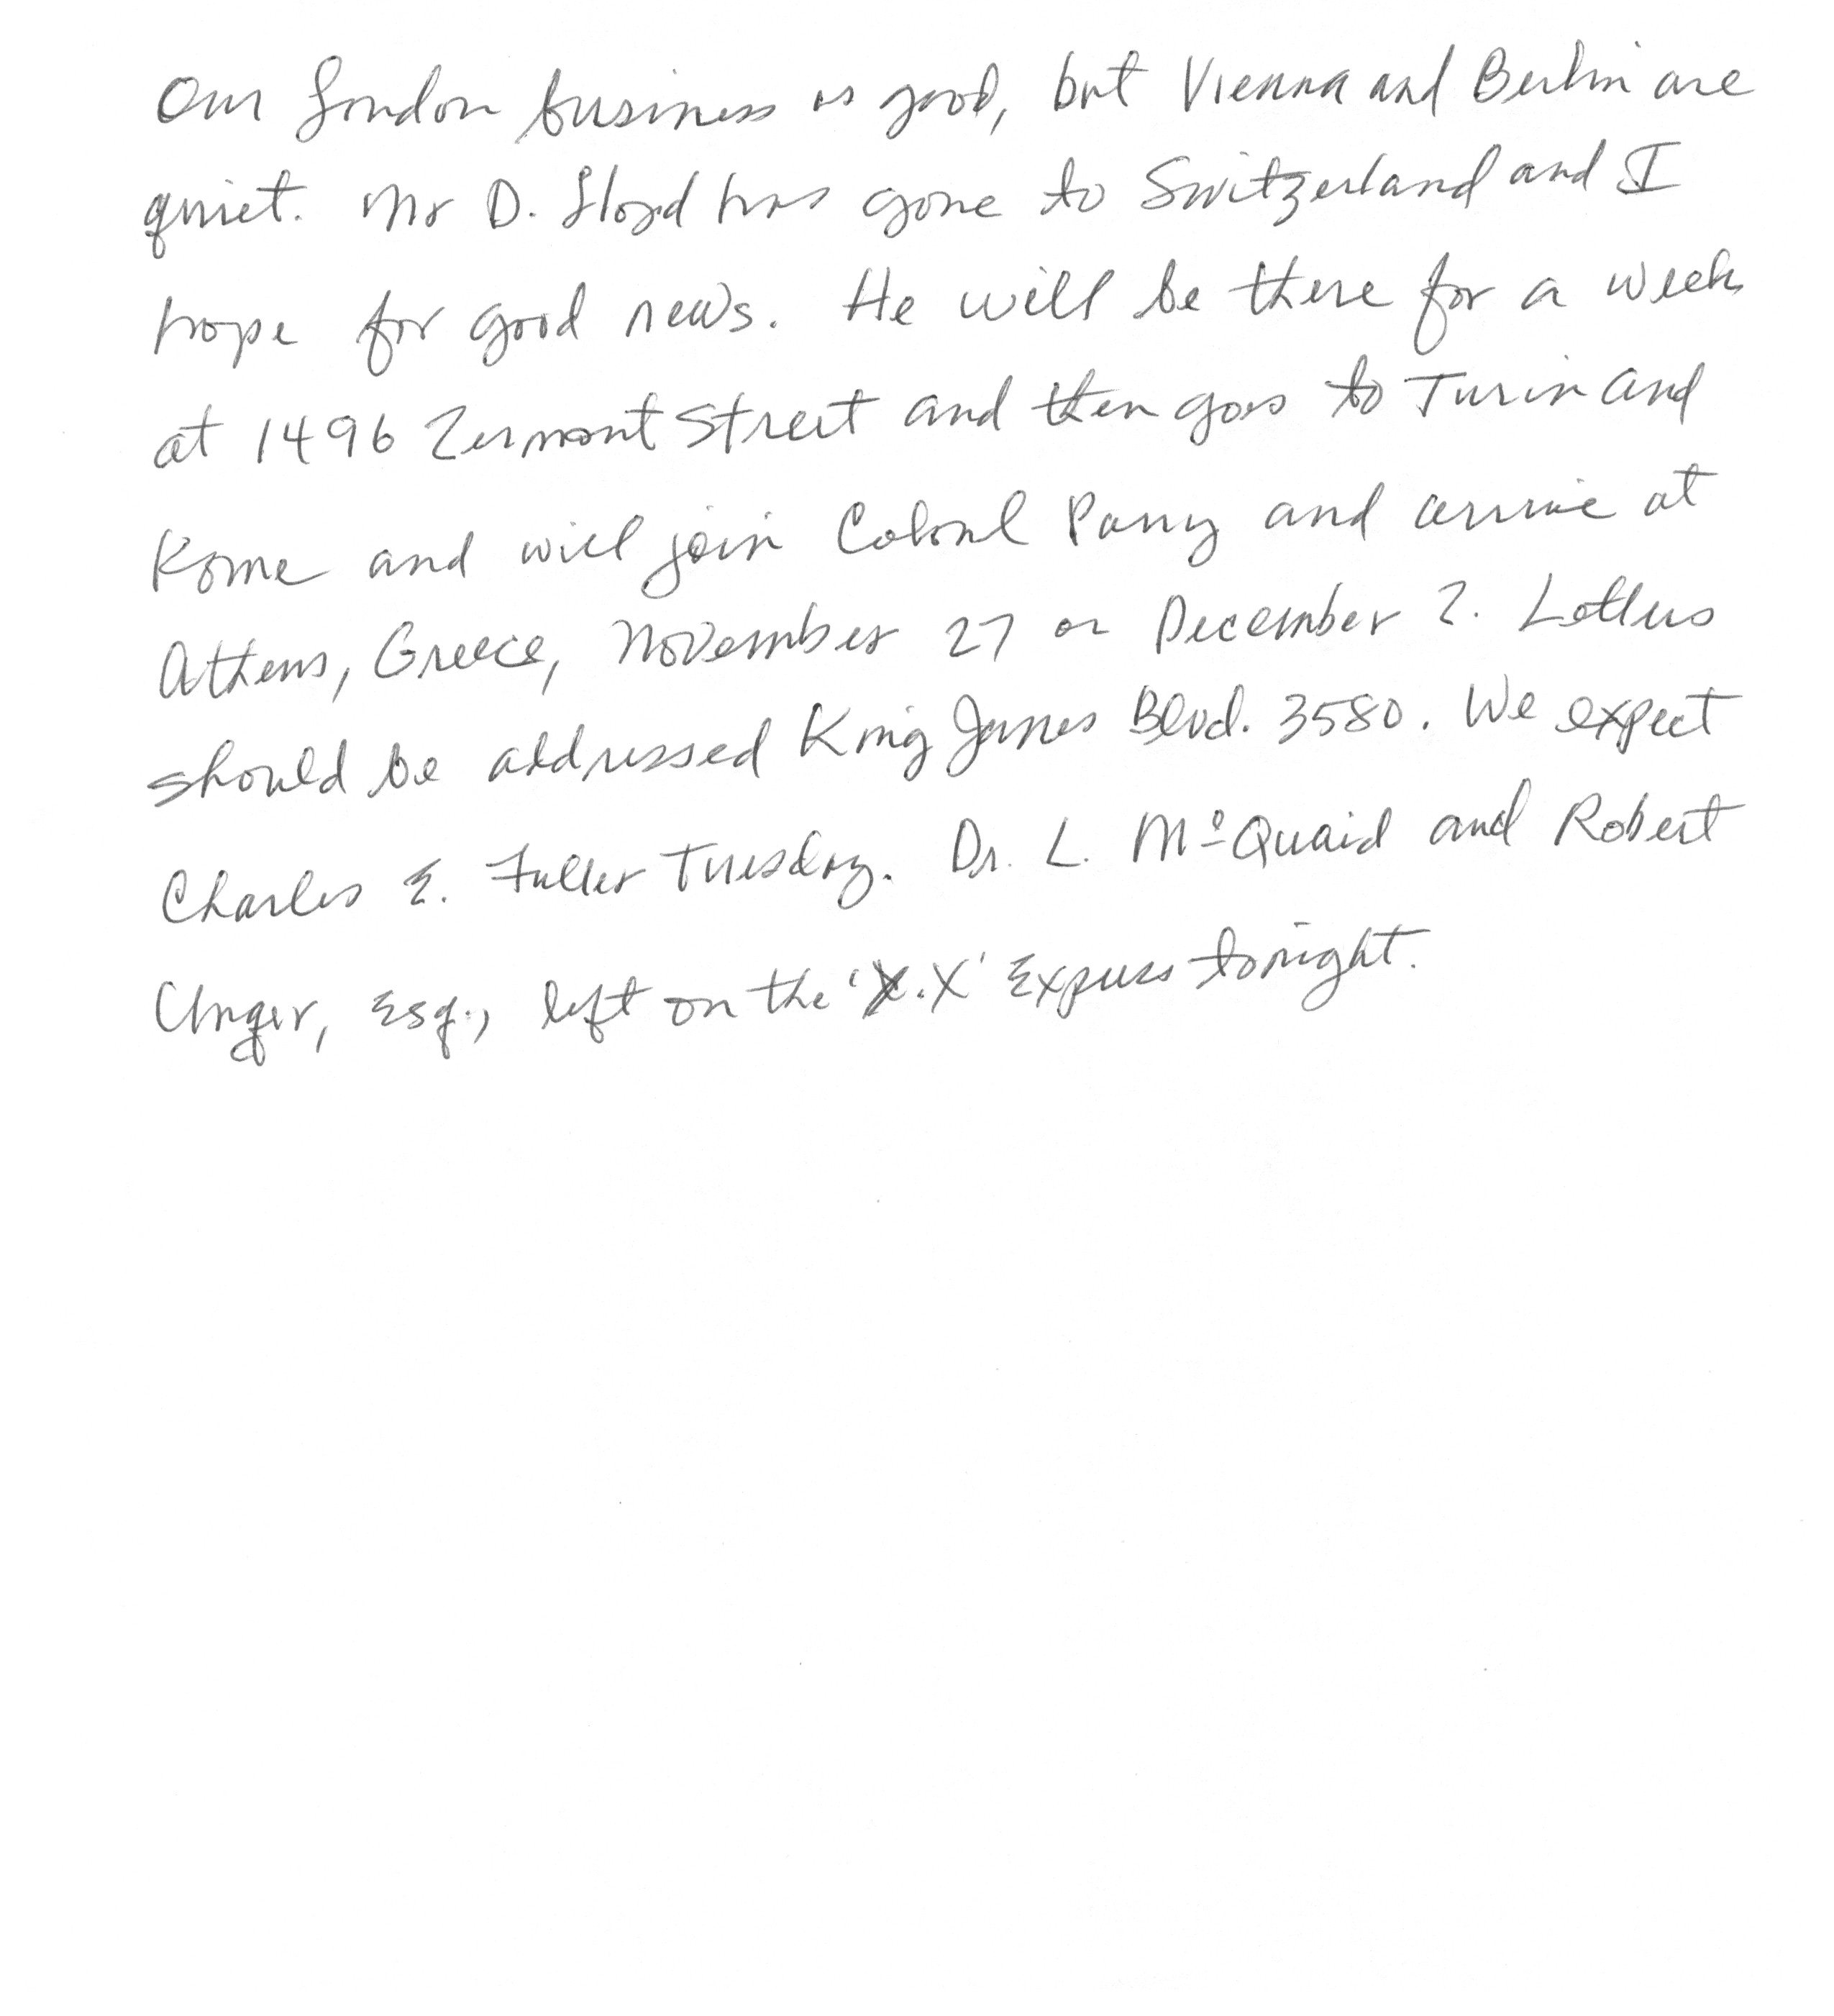 Our London business is good, but Vienna and Berlin are
quiet. Mr D. Lloyd has gone to Switzerland and I
hope for good news. He will be there for a week
at 1496 Zermont Street and then goes to Turin and
Rome and will join Colonel Parry and arrive at
Athens, Greece, November 27 or December 2. Letters
should be addressed King James Blvd. 3580. We expect
Charles E. Fuller Tuesday. Dr. L. McQuaid and Robert
Unger, Esq., left on the 'X.X' Express tonight.